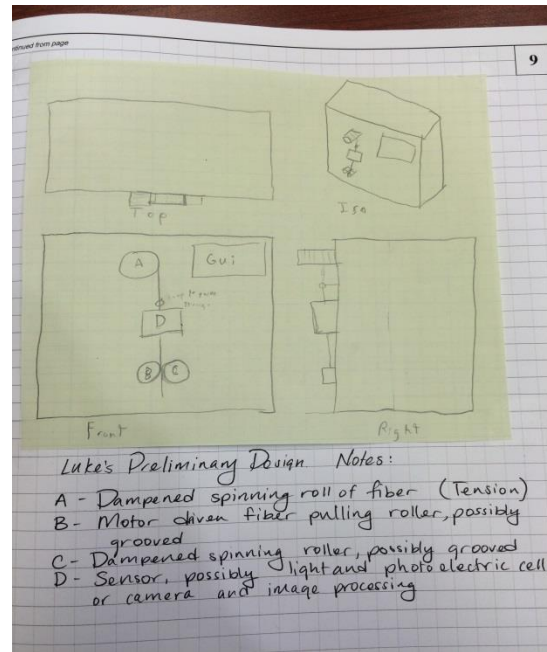 ntinued from page
9
Top
Iso
A
Gui
D
B
C
Front
Right
Luke's Preliminary Design Notes:
A - Dampened spinning roll of fiber (Tension)
B - Motor driven fiber pulling roller, possibly
grooved
C - Dampened spinning roller, possibly grooved
D - Sensor, possibly light and photo electric cell
or camera and image processing